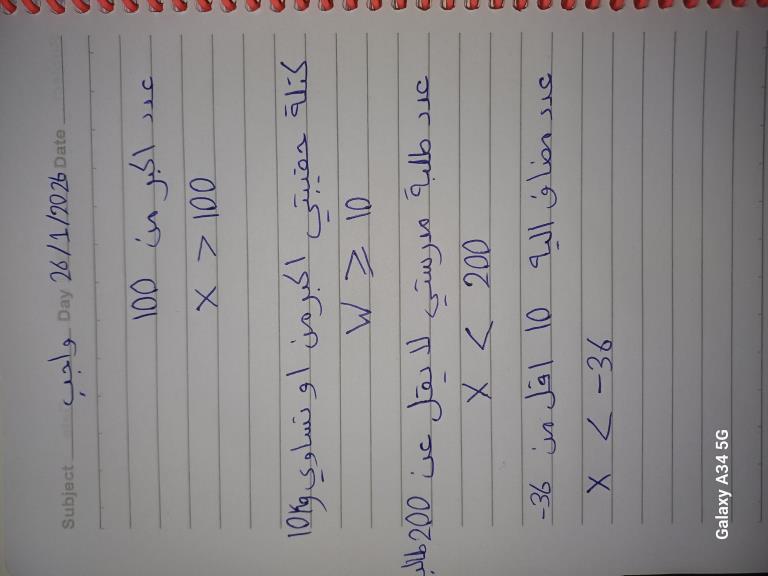 Subject واجب Day 26/1/2026 Date
عدد اكبر من 100
X > 100
كتلة حقيبتي اكبر من او تساوي 10Kg
W ≥ 10
عدد طلبة مدرستي لا يقل عن 200 طالب
X < 200
عدد مضاف الية 10 اقل من 36-
X < -36
Galaxy A34 5G